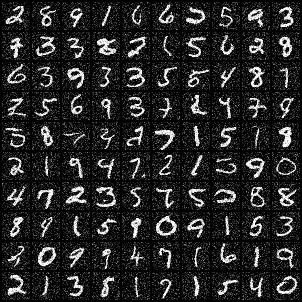 2 8 9 1 6 6 5 9 3
9 3 3 8 2 1 5 6 2 8
6 3 9 3 3 5 5 4 8 7
2 5 6 9 3 7 9 7 9
5 8 7 2 7 1 5 1 8
2 1 9 9 7 2 1 5 9 0
4 7 2 3 5 7 5 2 8 8
8 9 1 5 9 0 9 1 5 3
3 0 9 9 4 7 1 6 1 9
2 1 3 8 1 7 1 5 4 0